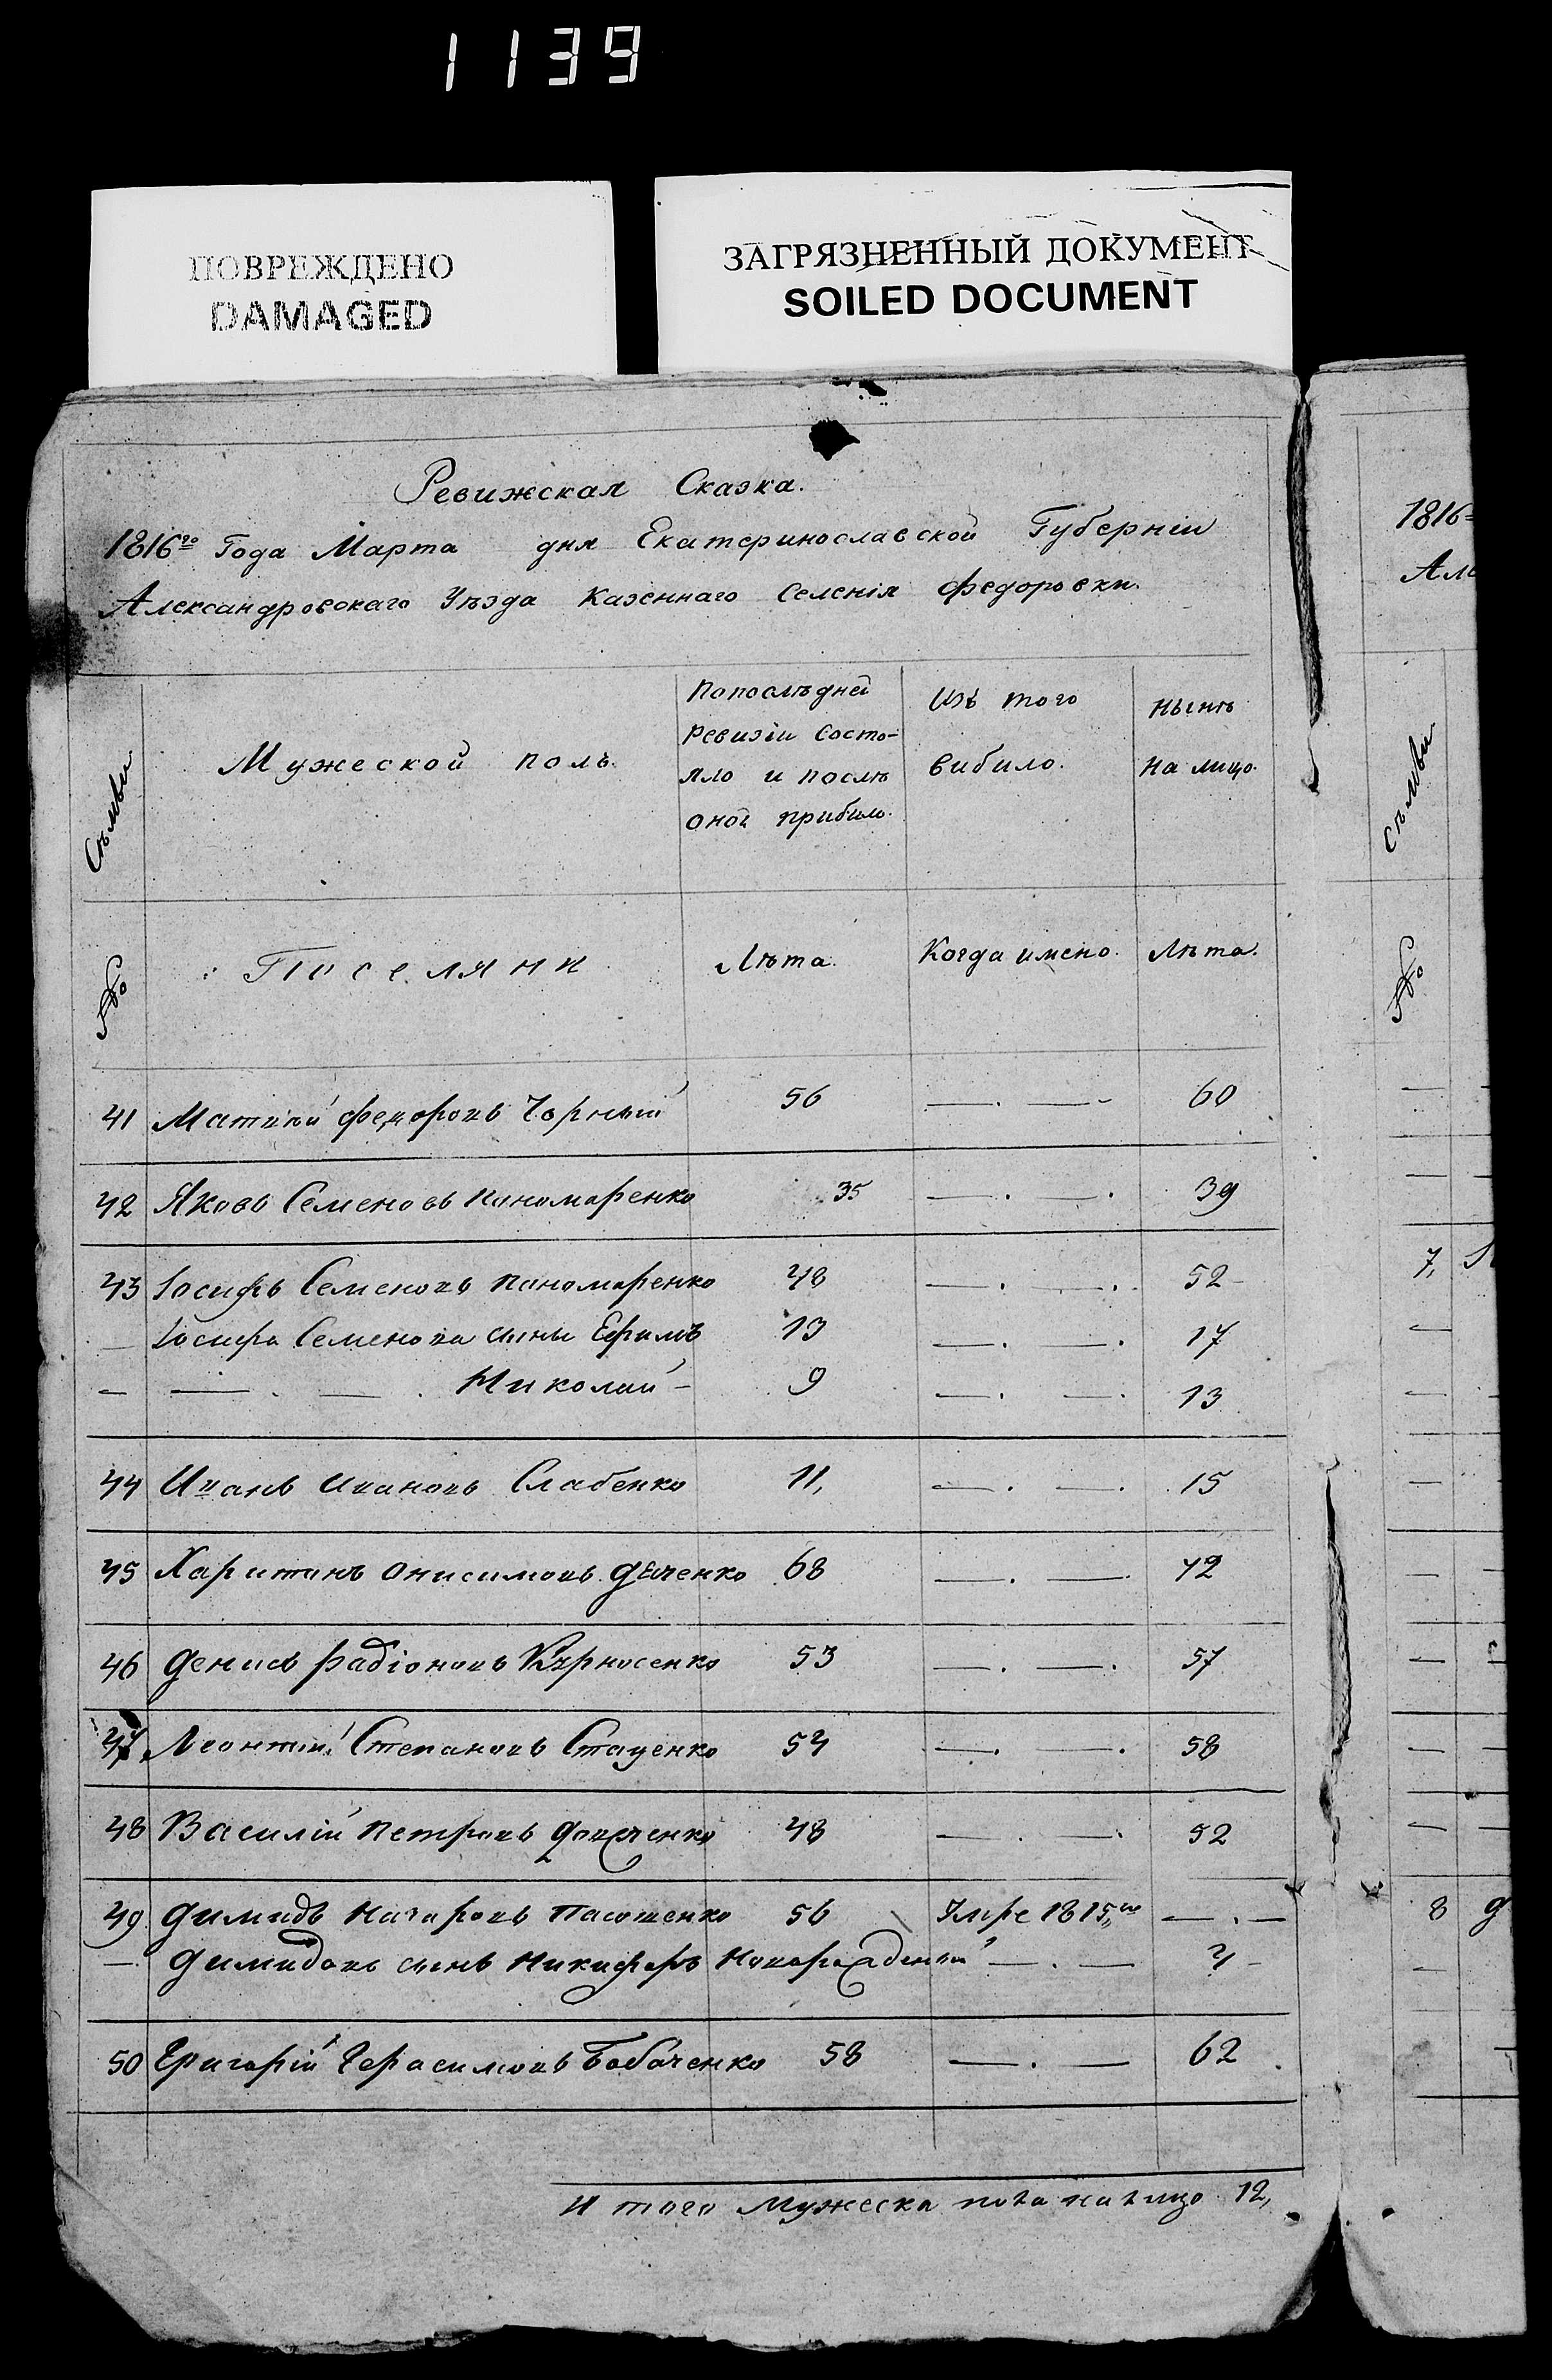 1139
ПОВРЕЖДЕНО
DAMAGED
ЗАГРЯЗНЕННЫЙ ДОКУМЕНТ
SOILED DOCUMENT
Ревижская Сказка.
1816го Года Марта дня Екатеринославской Губерніи
Александровскаго Уѣзда Казеннаго Селенія Федоровки.
Съмьи
Мужеской полъ.
Попослѣдней ревизіи состо-
яло и послѣ оной прибыло.
Изъ того вибило.
Нынѣ на лицо.
№
Поселяни
Лѣта.
Когда имено.
Лѣта.
41 Матвѣй Федоровъ Чорный 56 — . — 60
42 Яковъ Семеновъ Пономаренко 35 — . — . 39
43 Іосифъ Семеновъ Пономаренко 48 — . — . 52
— Іосифа Семенова сыны Ефимъ 13 — . — . 17
— — . — . Николай — 9 — . — . 13
44 Иванъ Ивановъ Слабенко 11, — . — . 15
45 Харитинъ Онисимовъ 68 — . — . 72
46 Денисъ Радіоновъ Кирносенко 53 — . — . 57
47 Леонтій Степановъ Стаценко 54 — . — . 58
48 Василій Петровъ 48 — . — . 52
49 Димидъ Назаровъ 56 Умре 1815го — . —
— Димидовъ сынъ Никифоръ Новорожденый — . — 4 —
50 Григорій Герасимовъ Бабаченко 58 — . — 62
Итого мужеска пола на лицо 12,
1816
Але
Съмьи
№
7,
8